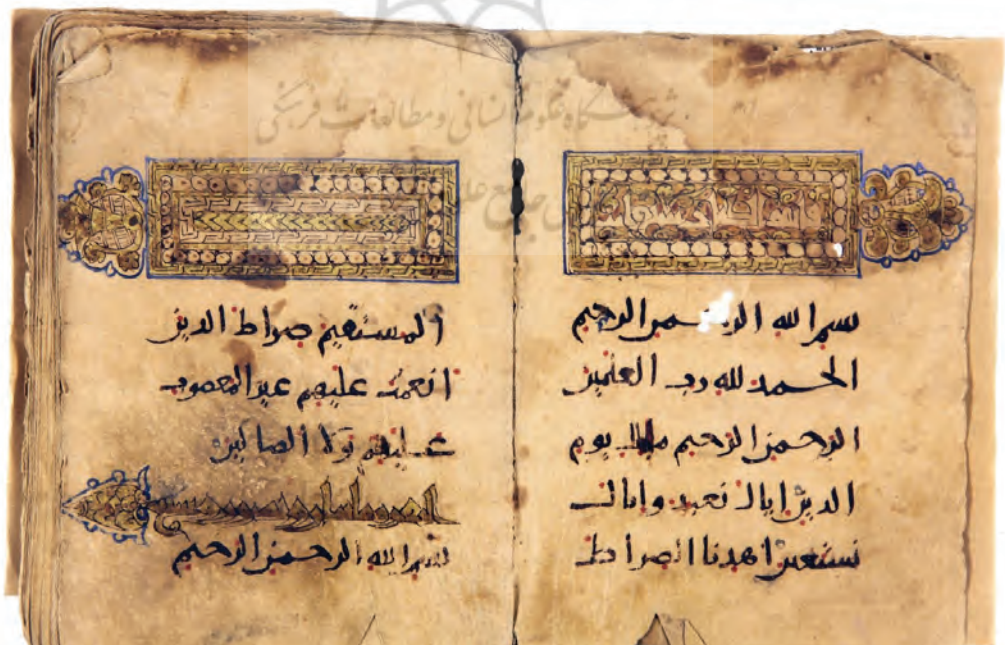 پژوهشگاه علوم انسانی و مطالعات فرهنگی
جامع
بسم الله الرحمن الرحيم
الحمد لله رب العلمين
الرحمن الرحيم ملك يوم
الدين اياك نعبد واياك
نستعين اهدنا الصراط
المستقيم صراط الذين
انعمت عليهم غير المغضوب
عليهم ولا الضالين
بسم الله الرحمن الرحيم